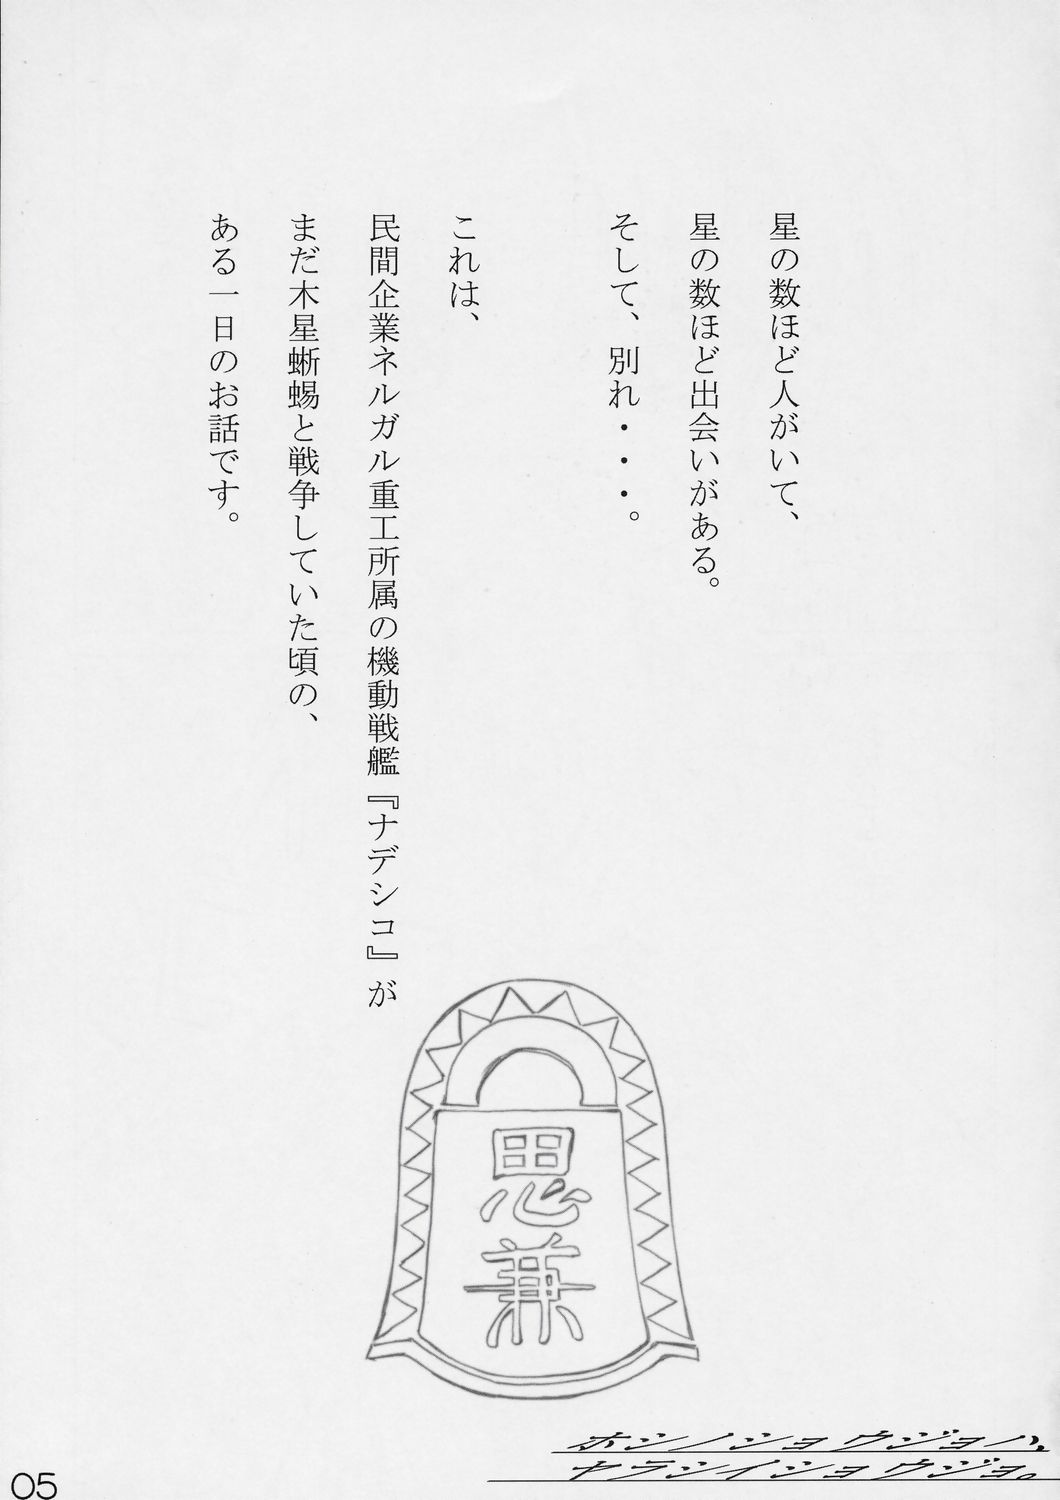 星の数ほど人がいて、
星の数ほど出会いがある。
そして、別れ・・・。
これは、
民間企業ネルガル重工所属の機動戦艦『ナデシコ』が
まだ木星蜥蜴と戦争していた頃の、
ある一日のお話です。
思
兼
ホシノショウジョハ、
ヤラシイショウジョ。
05